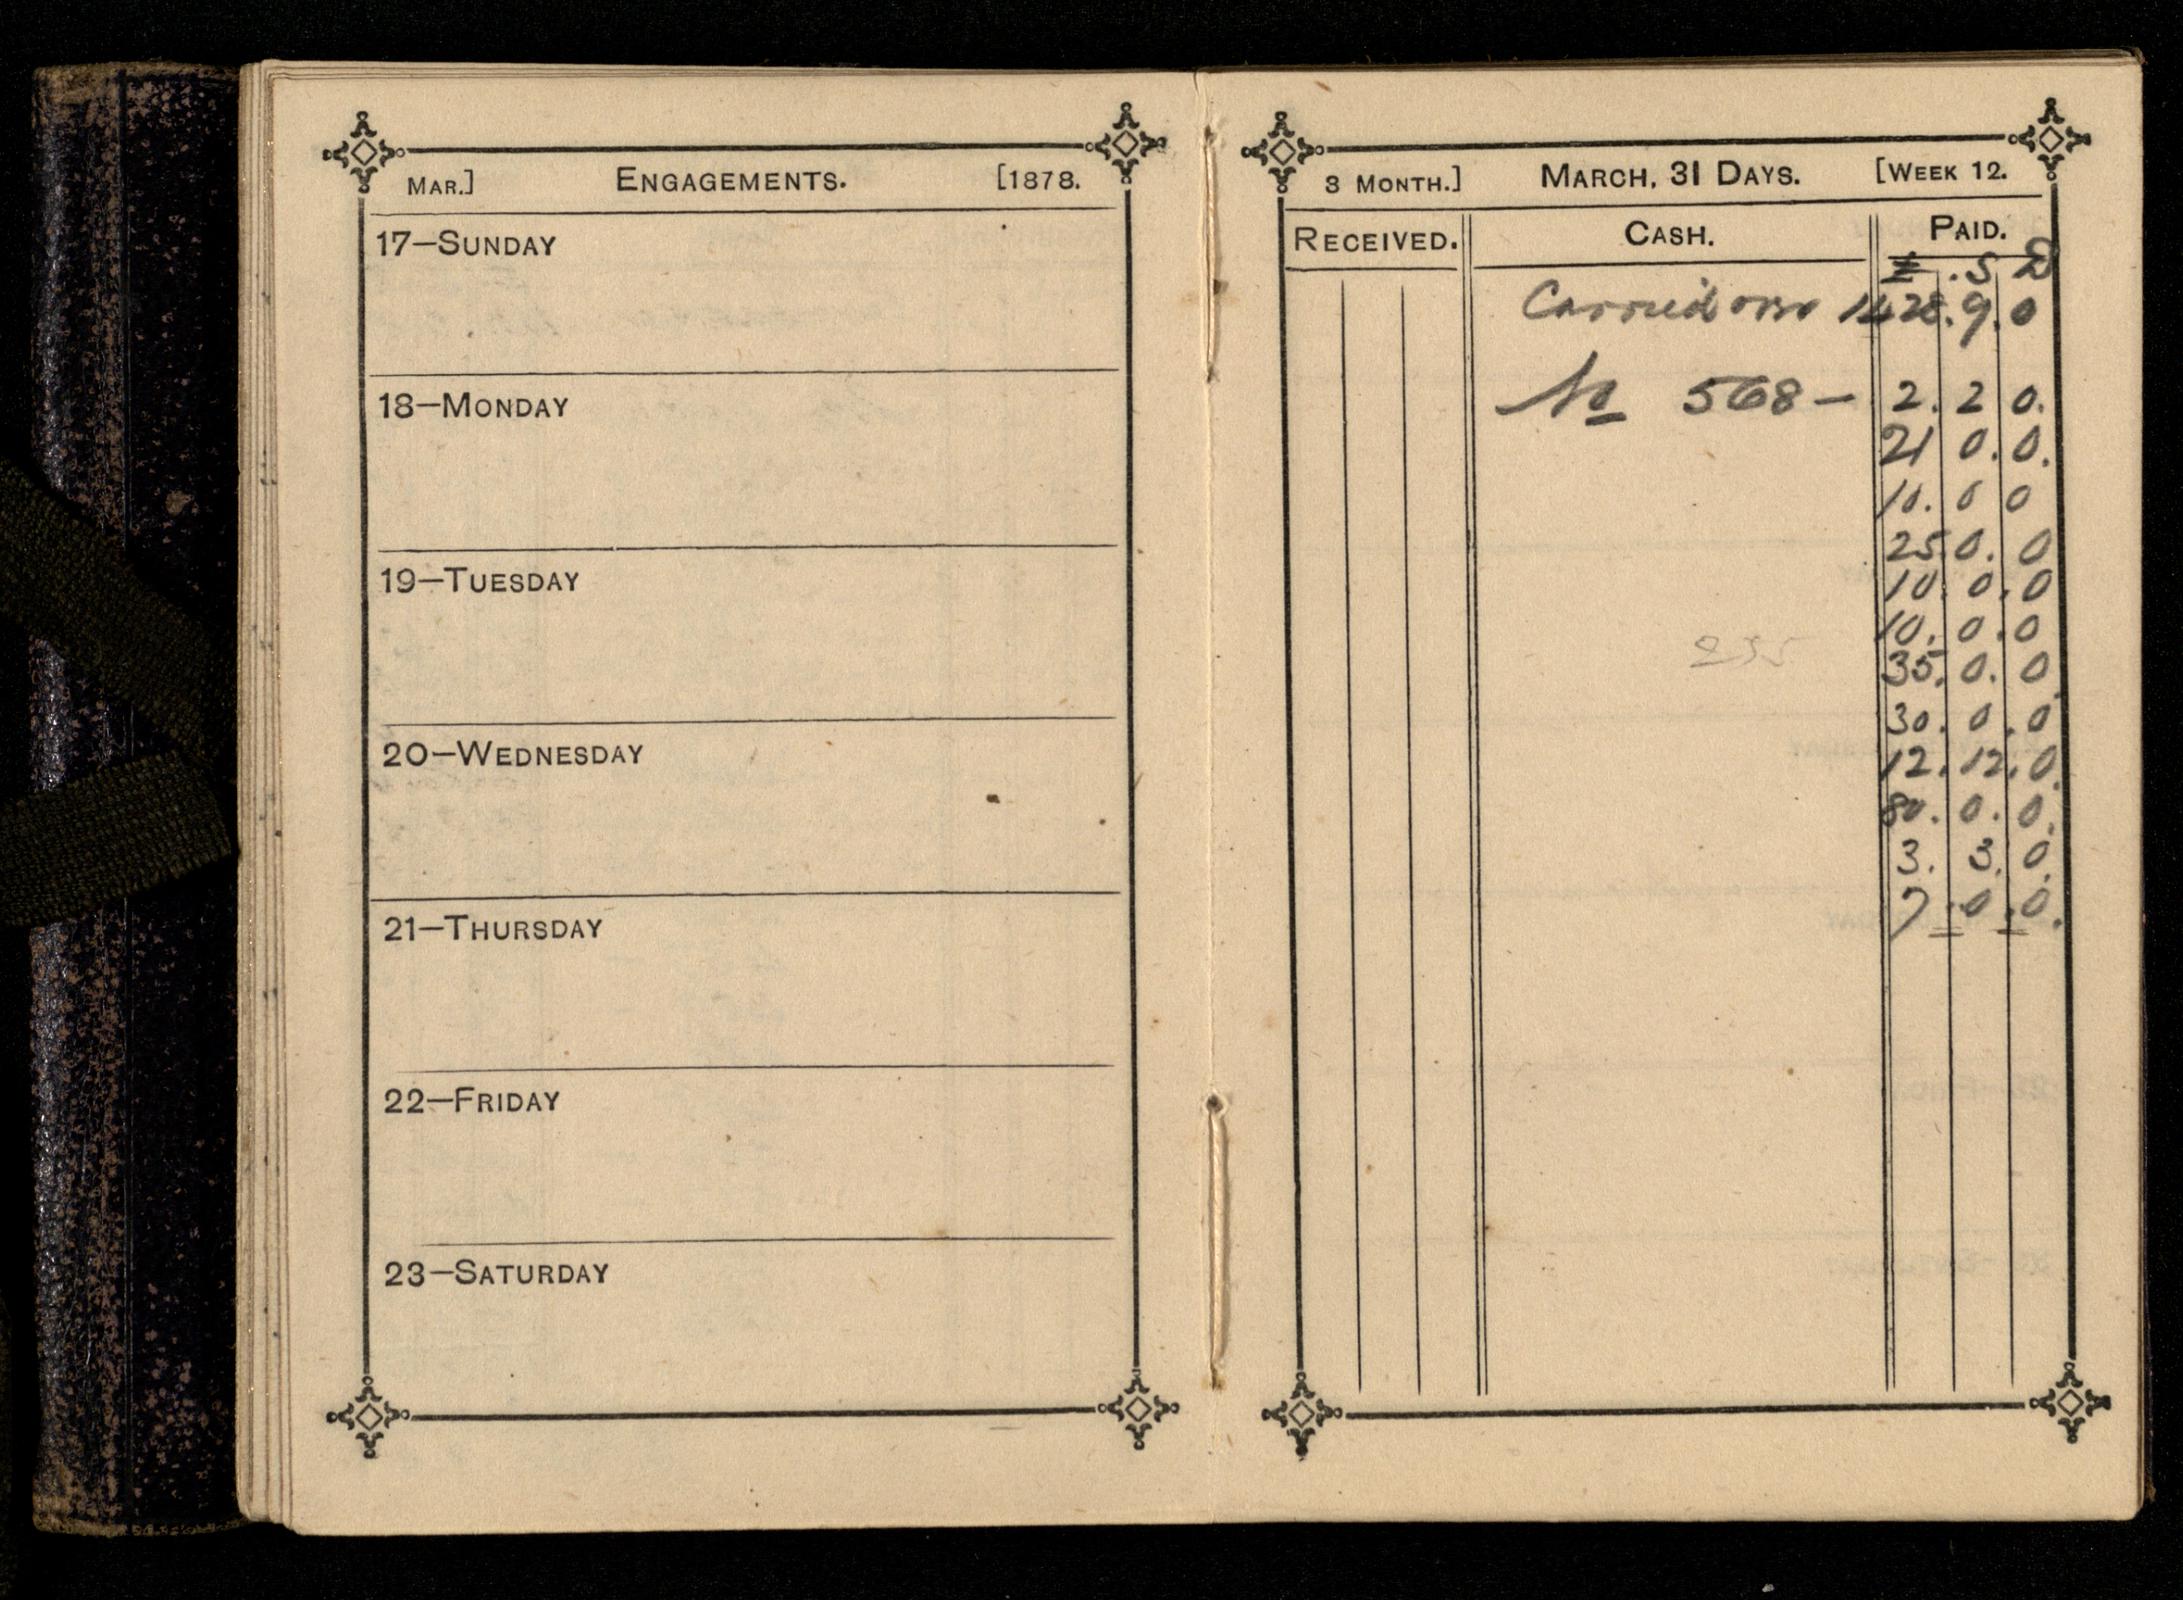 MAR.] ENGAGEMENTS. [1878.
17—SUNDAY
18—MONDAY
19—TUESDAY
20—WEDNESDAY
21—THURSDAY
22—FRIDAY
23—SATURDAY
3 MONTH.] MARCH, 31 DAYS. [WEEK 12.
RECEIVED. CASH. PAID.
£ . S D
Carried over 1428. 9. 0
No 568 — 2. 2 0.
21 0. 0.
10. 0 0
25 0. 0
10. 0. 0
10. 0. 0
35. 0. 0
30. 0. 0
12. 12. 0
80. 0. 0.
3. 3. 0
7. 0. 0.